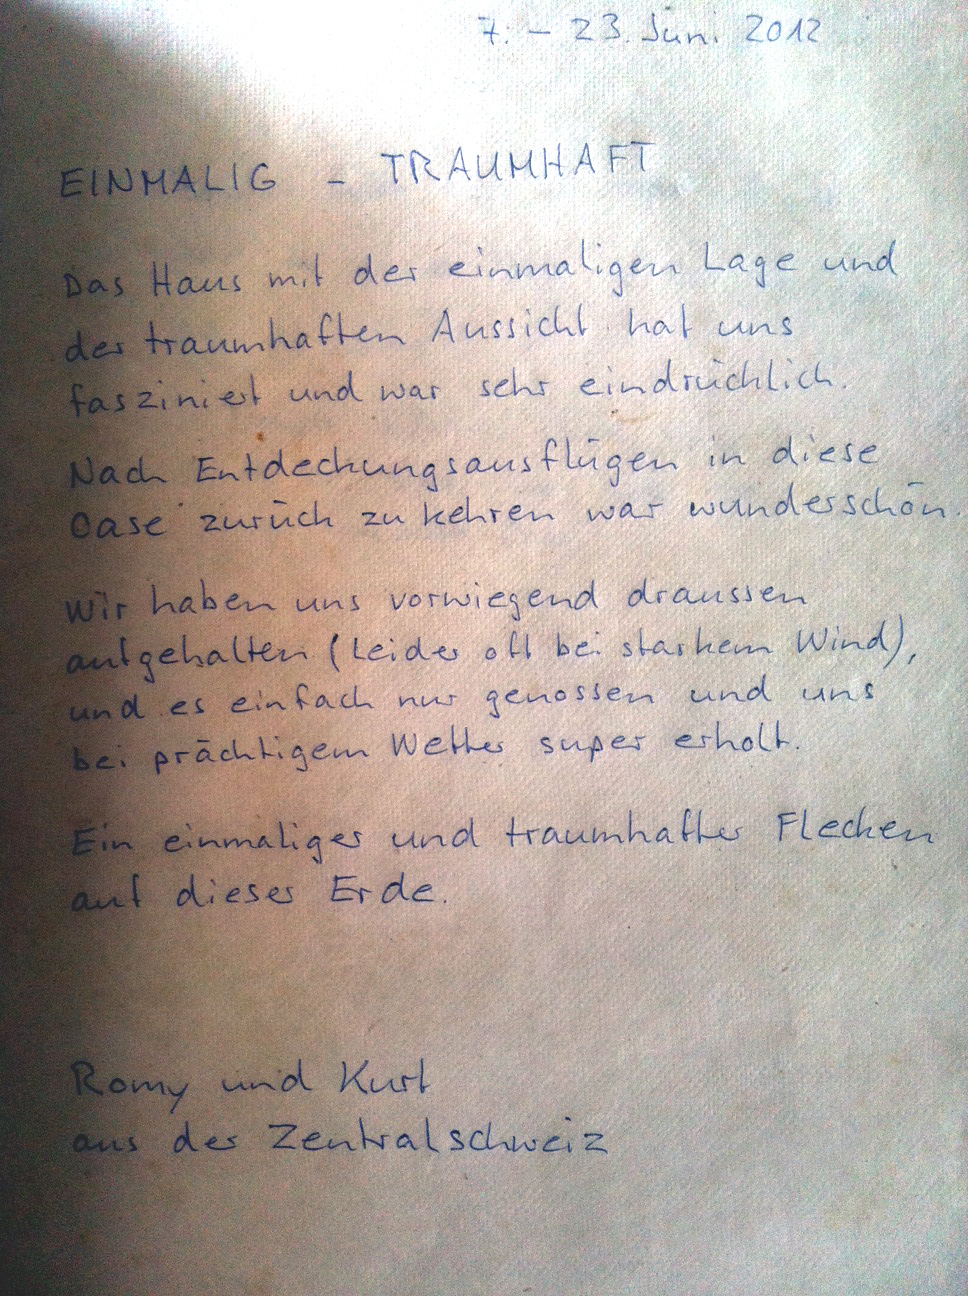 7. - 23. Juni 2012
EINMALIG - TRAUMHAFT
Das Haus mit der einmaligen Lage und
der traumhaften Aussicht hat uns
fasziniert und war sehr eindrücklich.
Nach Entdeckungsausflügen in diese
Oase zurück zu kehren war wunderschön.
Wir haben uns vorwiegend draussen
aufgehalten (Leider oft bei starkem Wind),
und es einfach nur genossen und uns
bei prächtigem Wetter super erholt.
Ein einmaliger und traumhafter Flecken
auf dieser Erde.
Romy und Kurt
aus der Zentralschweiz